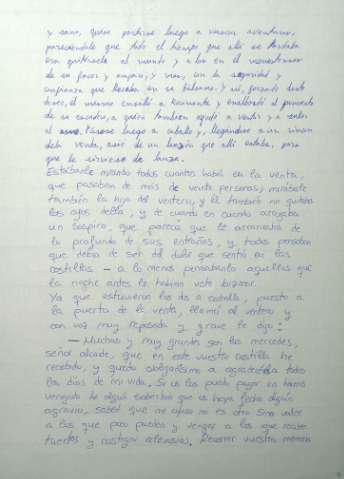 y sano, quiso partirse luego a buscar aventuras,
pareciéndole que todo el tiempo que allí se tardaba
era quitársele al mundo y a los en él menesterosos
de su favor y amparo, y más, con la seguridad y
confianza que llevaba en su bálsamo. Y así, forzado deste
deseo, él mismo ensilló a Rocinante y enalbardó al jumento
de su escudero, a quien también ayudó a vestir y a subir
el asno. Púsose luego a caballo y, llegándose a un rincón
de la venta, asió de un lanzón que allí estaba, para
que le sirviese de lanza.
Estábanle mirando todos cuantos había en la venta,
que pasaban de más de veinte personas; mirábale
también la hija del ventero, y él también no quitaba
los ojos della, y de cuando en cuando arrojaba
un sospiro, que parecía que le arrancaba de
lo profundo de sus entrañas, y todos pensaban
que debía de ser del dolor que sentía en las
costillas — a lo menos pensábanlo aquellos que
la noche antes le habían visto bizmar.
Ya que estuvieron los dos a caballo, puesto a
la puerta de la venta, llamó al ventero y
con voz muy reposada y grave le dijo:
— Muchas y muy grandes son las mercedes,
señor alcaide, que en este vuestro castillo he
recebido, y quedo obligadísimo a agradecéroslas todos
los días de mi vida. Si os las puedo pagar en haceros
vengado de algún soberbio que os haya fecho algún
agravio, sabed que mi oficio no es otro sino valer
a los que poco pueden y vengar a los que reciben
tuertos y castigar alevosías. Recorred vuestra memoria